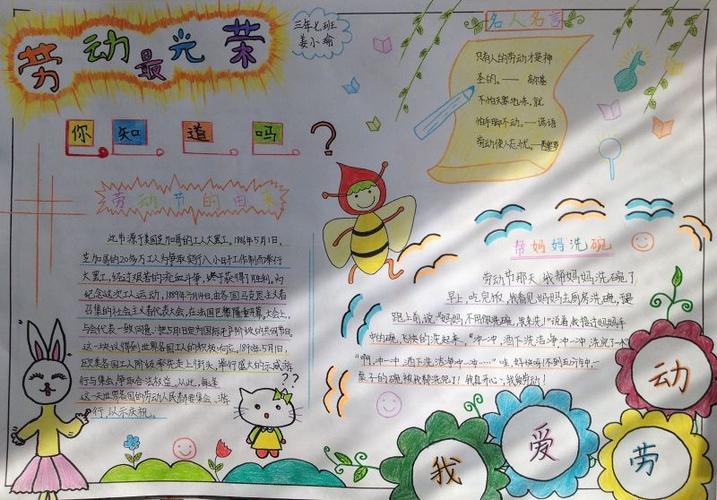 劳动最光荣
三年七班
姜小瑜
名人名言
只有人的劳动才是神
圣的。——高尔基
不怕天寒地冻,就
怕手脚不动。——谚语
劳动使人忘忧。——西塞罗
你知道吗
?
劳动节的由来
此节源于美国芝加哥的工人大罢工。1886年5月1日,
芝加哥的20多万工人为争取实行八小时工作制而举行
大罢工,经过艰苦的流血斗争,终于获得了胜利。为
纪念这次工人运动,1889年7月14日,由各国马克思主义者
召集的社会主义者代表大会,在法国巴黎隆重开幕。大会上,
与会代表一致同意:把5月1日定为国际无产阶级的共同节日。
这一决议得到世界各国工人的积极响应。1890年5月1日,
欧美各国工人阶级率先走上街头,举行盛大的示威游
行与集会,争取合法权益。从此,每逢
这一天世界各国的劳动人民都要集会、游
行,以示庆祝。
??
帮妈妈洗碗
劳动节那天,我帮妈妈洗碗了。
早上,吃完饭,我看见妈妈去厨房洗碗,便
跑上前说:"妈妈,不用你洗碗,我来洗!"说着,
"啊,冲一冲,洒下洗洁净冲一冲……"哇,好快啊!不到五分钟,一
桌子的碗被我洗完了!我真开心,我能劳动!
我爱劳动